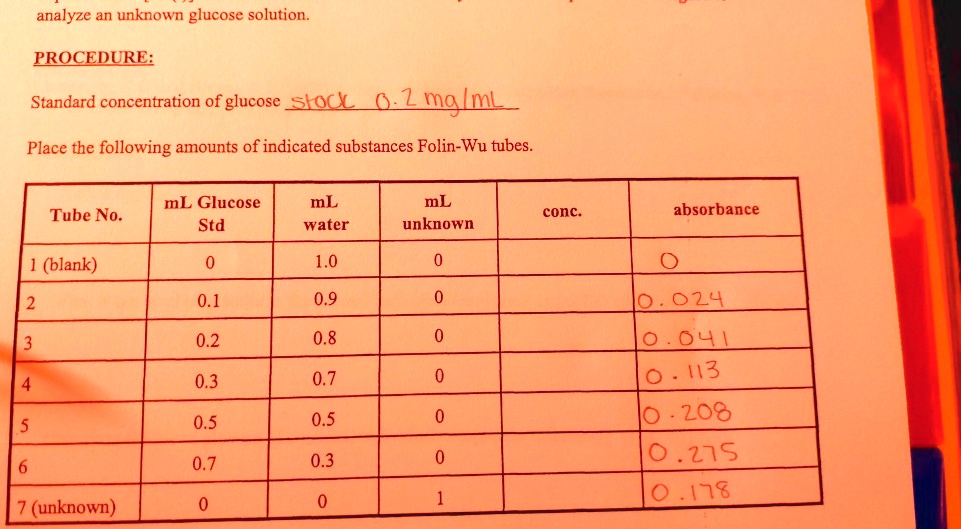 analyze an unknown glucose solution.
PROCEDURE:
Standard concentration of glucose stock 0.2 mg/mL
Place the following amounts of indicated substances Folin-Wu tubes.
Tube No. mL Glucose Std mL water mL unknown conc. absorbance
1 (blank) 0 1.0 0 0
2 0.1 0.9 0 0.024
3 0.2 0.8 0 0.041
4 0.3 0.7 0 0.113
5 0.5 0.5 0 0.208
6 0.7 0.3 0 0.275
7 (unknown) 0 0 1 0.178